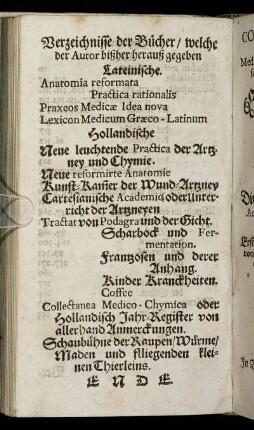 Verzeichnisse der Bücher/ welche
der Autor bißher herauß gegeben
Lateinische.
Anatomia reformata
Practica rationalis
Praxeos Medicæ Idea nova
Lexicon Medicum Græco-Latinum
Hollandische
Neue leuchtende Practica der Artz-
ney und Chymie.
Neue reformirte Anatomie
Kunst-Kam̄er der Wund-Artzney
Cartesianische Academie oder Unter-
richt der Artzneyen
Tractat von Podagra und der Gicht.
Scharbock und Fer-
mentation.
Frantzosen und derer
Anhang.
Kinder Kranckheiten.
Coffee
Collectanea Medico-Chymica oder
Holländisch Jahr-Register von
allerhand Anmerckungen.
Schaubühne der Raupen/ Würme/
Maden und fliegenden klei-
nen Thierleins.
E N D E.